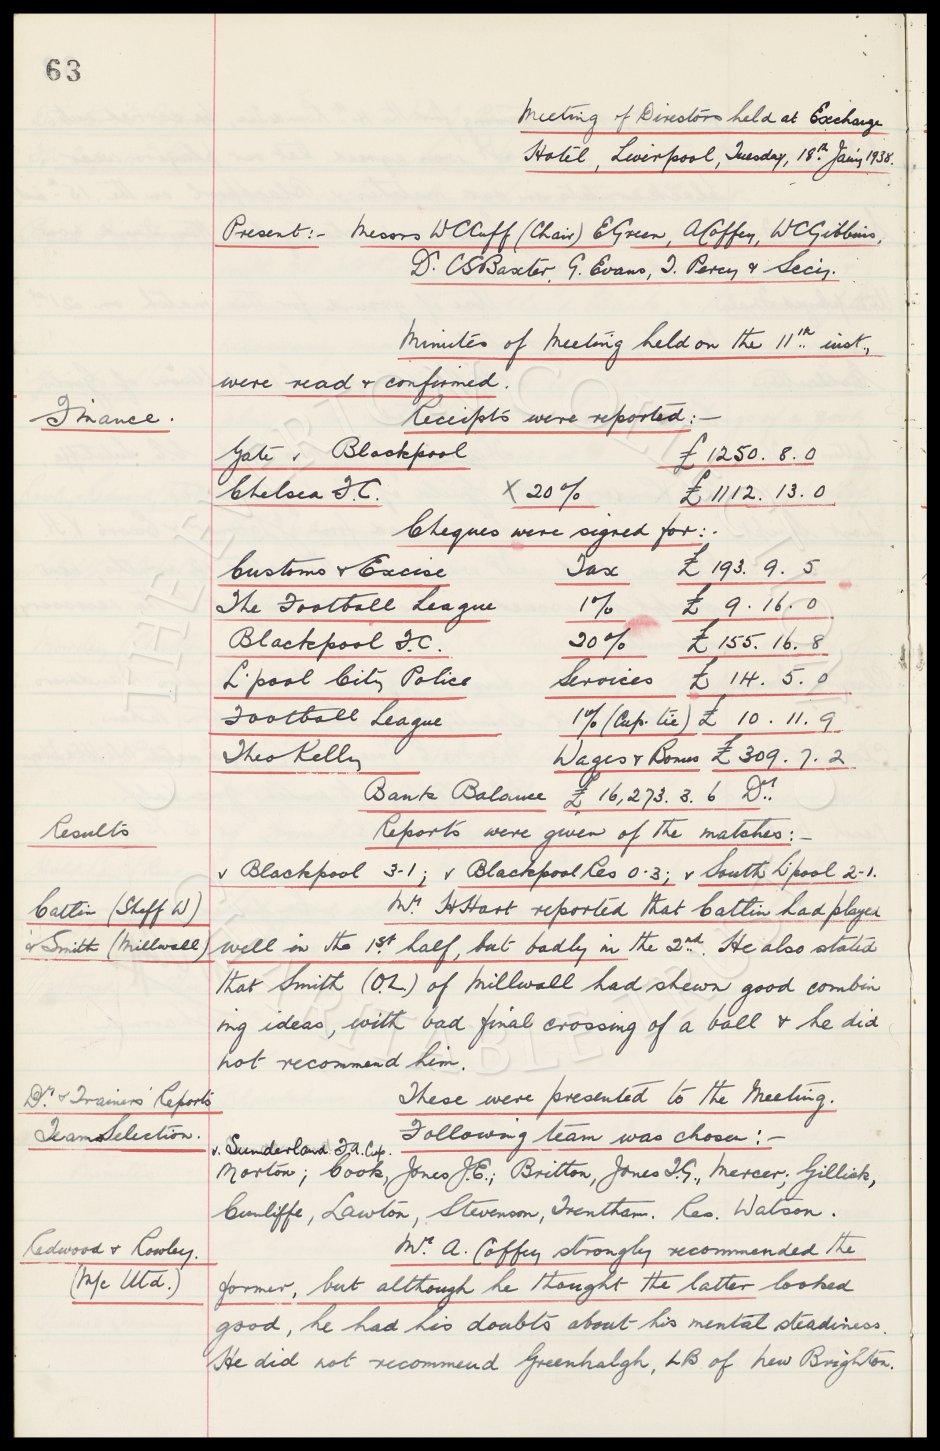 63
Meeting of Directors held at Exchange
Hotel, Liverpool, Tuesday, 18th Jany 1938.
Present:- Messrs W C Cuff (Chair) E Green, A Coffey, W C Gibbins,
Dr. C S Baxter, G. Evans, T. Percy & Secy.
Minutes of Meeting held on the 11th inst.,
were read & confirmed.
Finance. Receipts were reported:-
Gate v Blackpool £1250. 8. 0
Chelsea F.C. X 20% £1112. 13. 0
Cheques were signed for:-
Customs & Excise Tax £193. 9. 5
The Football League 1% £ 9. 16. 0
Blackpool F.C. 20% £155. 16. 8
L'pool City Police Services £ 14. 5. 0
Football League 1% (Cup. tie) £ 10. 11. 9
Theo Kelly Wages & Bonus £309. 7. 2
Bank Balance £16,273. 3. 6 Dr.
Results Reports were given of the matches:-
v Blackpool 3-1; v Blackpool Res 0-3; v South L'pool 2-1.
Catlin (Sheff W) Mr. H Hart reported that Catlin had played
& Smith (Millwall) well in the 1st half, but badly in the 2nd. He also stated
that Smith (O.L.) of Millwall had shewn good combin
ing ideas, with bad final crossing of a ball & he did
not recommend him.
Dr. & Trainers' Reports These were presented to the Meeting.
Team Selection. Following team was chosen:-
v. Sunderland F.A. Cup.
Morton; Cook, Jones J.E.; Britton, Jones T.G., Mercer; Gillick,
Cunliffe, Lawton, Stevenson, Trentham. Res. Watson.
Redwood & Rowley. Mr. A. Coffey strongly recommended the
(M/c Utd.) former, but although he thought the latter looked
good, he had his doubts about his mental steadiness.
He did not recommend Greenhalgh, LB of New Brighton.